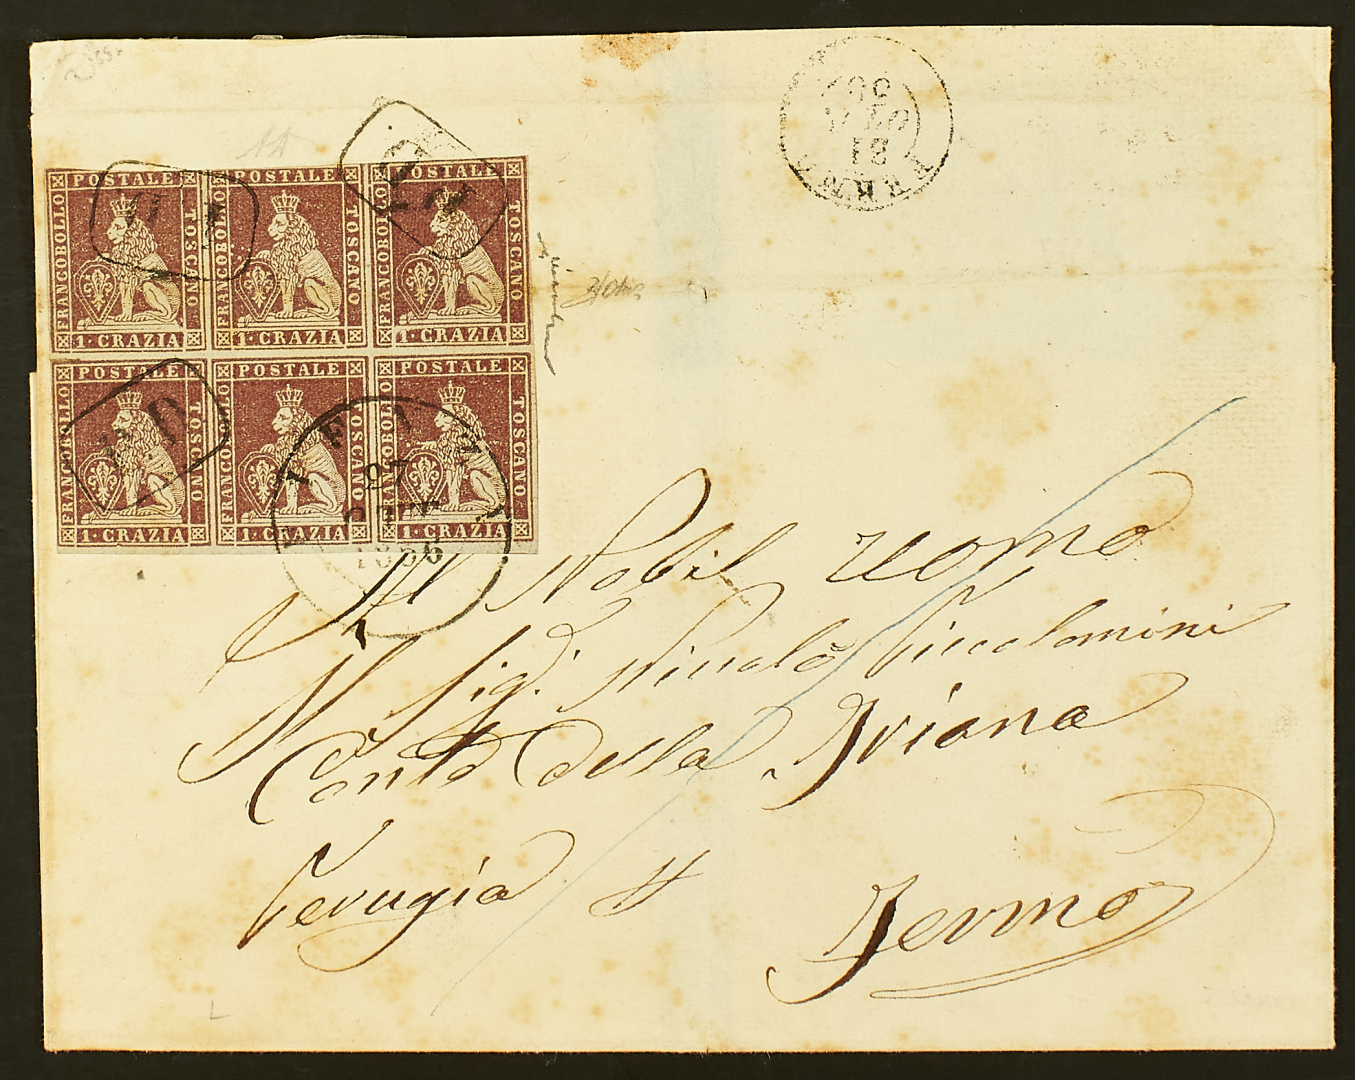 POSTALE POSTALE POSTALE
FRANCOBOLLO TOSCANO FRANCOBOLLO TOSCANO FRANCOBOLLO TOSCANO
1·CRAZIA 1·CRAZIA 1·CRAZIA
POSTALE POSTALE POSTALE
FRANCOBOLLO TOSCANO FRANCOBOLLO TOSCANO FRANCOBOLLO TOSCANO
1·CRAZIA 1·CRAZIA 1·CRAZIA
P.D
27
OTT
1856
FERMO
31
OTT
56
Al Nobil Uomo
Il Sig. Niccolò Piccolomini
Conte della Triana
Perugia
Fermo